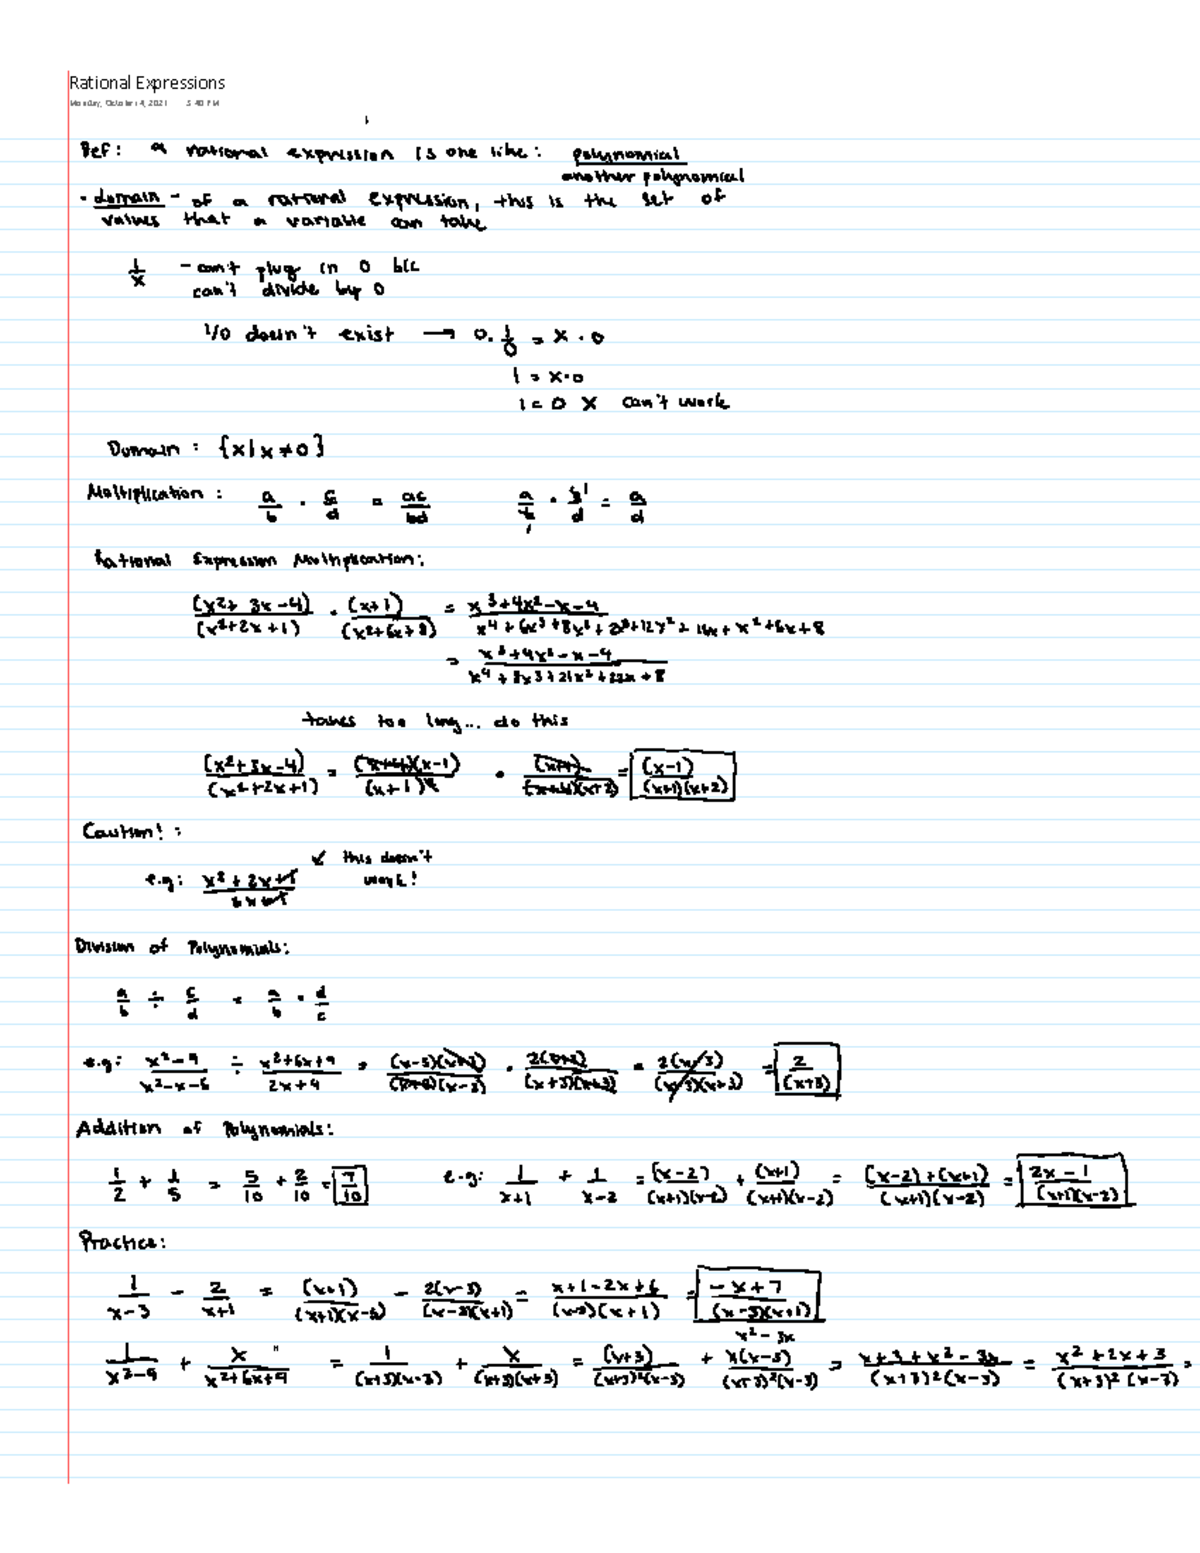 Rational Expressions
Monday, October 4, 2021 5:40 PM
Def: a rational expression is one like: polynomial / another polynomial
• domain - of a rational expression, this is the set of
values that a variable can take
1/x - can't plug in 0 b/c
can't divide by 0
1/0 doesn't exist → 0 · 1/0 = x · 0
1 = x·0
1 = 0 X can't work
Domain: {x | x ≠ 0}
Multiplication: a/b · c/d = ac/bd a/b · b/d = a/d
Rational Expression Multiplication:
(x²+3x-4)/(x²+2x+1) · (x+1)/(x²+6x+8) = (x³+4x²-x-4)/(x⁴+6x³+8x²+2x³+12x²+16x+x²+6x+8)
= (x³+4x²-x-4)/(x⁴+8x³+21x²+22x+8)
takes too long... do this
(x²+3x-4)/(x²+2x+1) = (x+4)(x-1)/(x+1)² · (x+1)/(x+4)(x+2) = (x-1)/(x+1)(x+2)
Caution!:
↙ this doesn't
e.g: (x²+2x+1)/ work!
Division of Polynomials:
a/b ÷ c/d = a/b · d/c
e.g: (x²-9)/(x²-x-6) ÷ (x²+6x+9)/(2x+4) = (x-3)(x+3)/(x+2)(x-3) · 2(x+2)/(x+3)(x+3) = 2(x-3)/(x-3)(x+3) = 2/(x+3)
Addition of Polynomials:
1/2 + 1/5 = 5/10 + 2/10 = 7/10 e.g: 1/(x+1) + 1/(x-2) = (x-2)/(x+1)(x-2) + (x+1)/(x+1)(x-2) = (x-2)+(x+1)/(x+1)(x-2) = 2x-1/(x+1)(x-2)
Practice:
1/(x-3) - 2/(x+1) = (x+1)/(x+1)(x-3) - 2(x-3)/(x-3)(x+1) = x+1-2x+6/(x-3)(x+1) = -x+7/(x-3)(x+1)
x²-3x
1/(x²-9) + x/(x²+6x+9) = 1/(x+3)(x-3) + x/(x+3)(x+3) = (x+3)/(x+3)²(x-3) + x(x-3)/(x+3)²(x-3) = x+3+x²-3x/(x+3)²(x-3) = x²+2x+3/(x+3)²(x-3) =